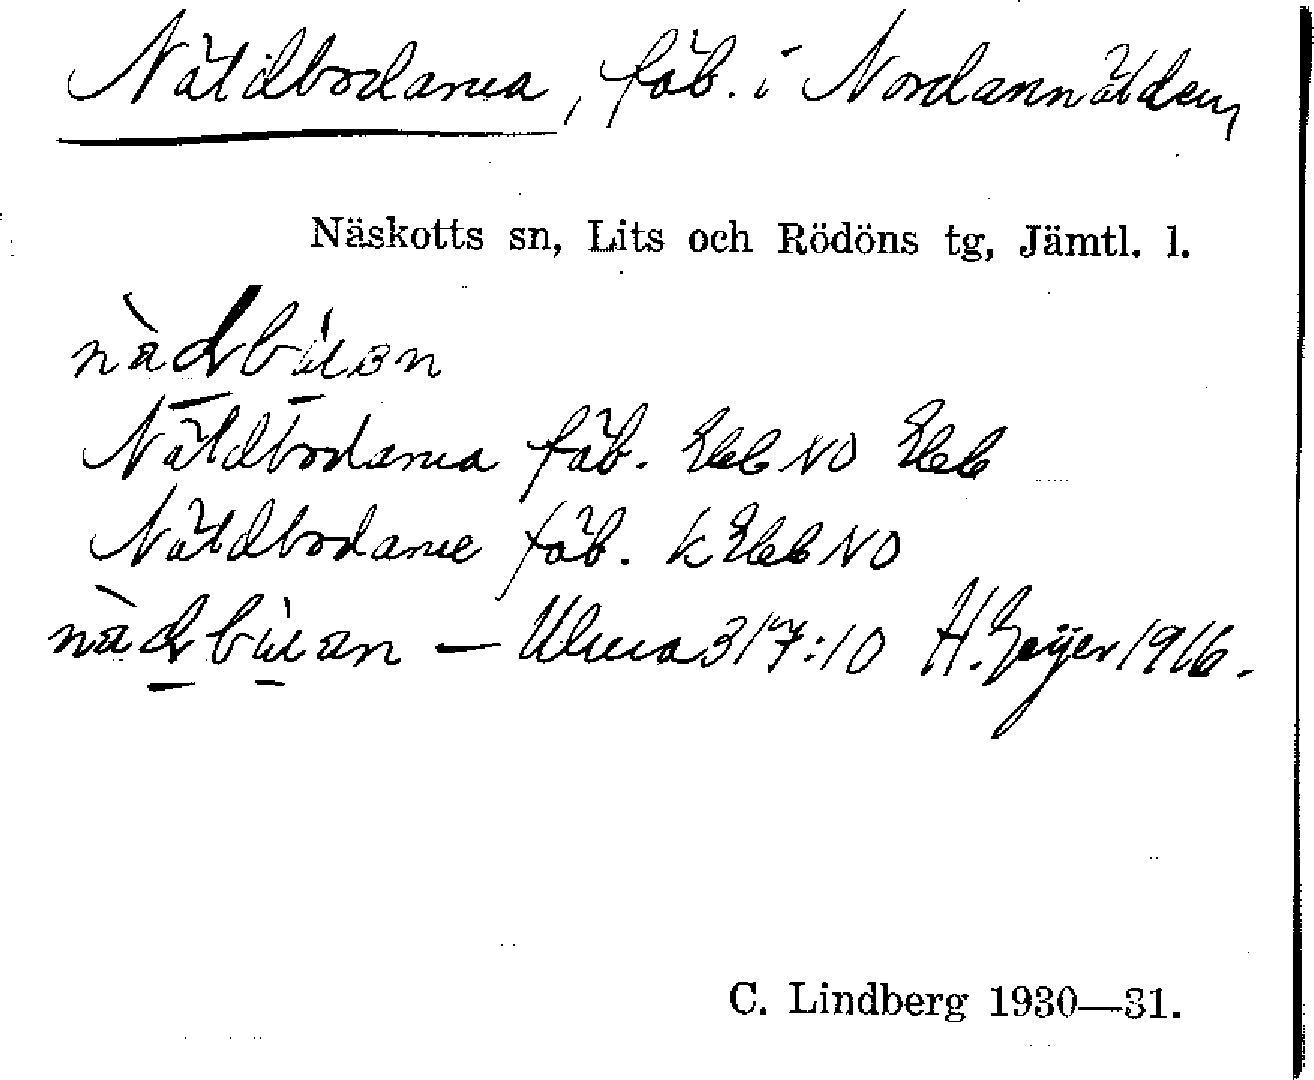 Nätdbodarna, fäb. i Nordannälden,
Näskotts sn, Lits och Rödöns tg, Jämtl. l.
Nätdbodarna fäb. Ebb NO Ebb
Nätdbodarne fäb. k Ebb NO
— Ulma 317:10 H. Geijer 1916.
C. Lindberg 1930—31.